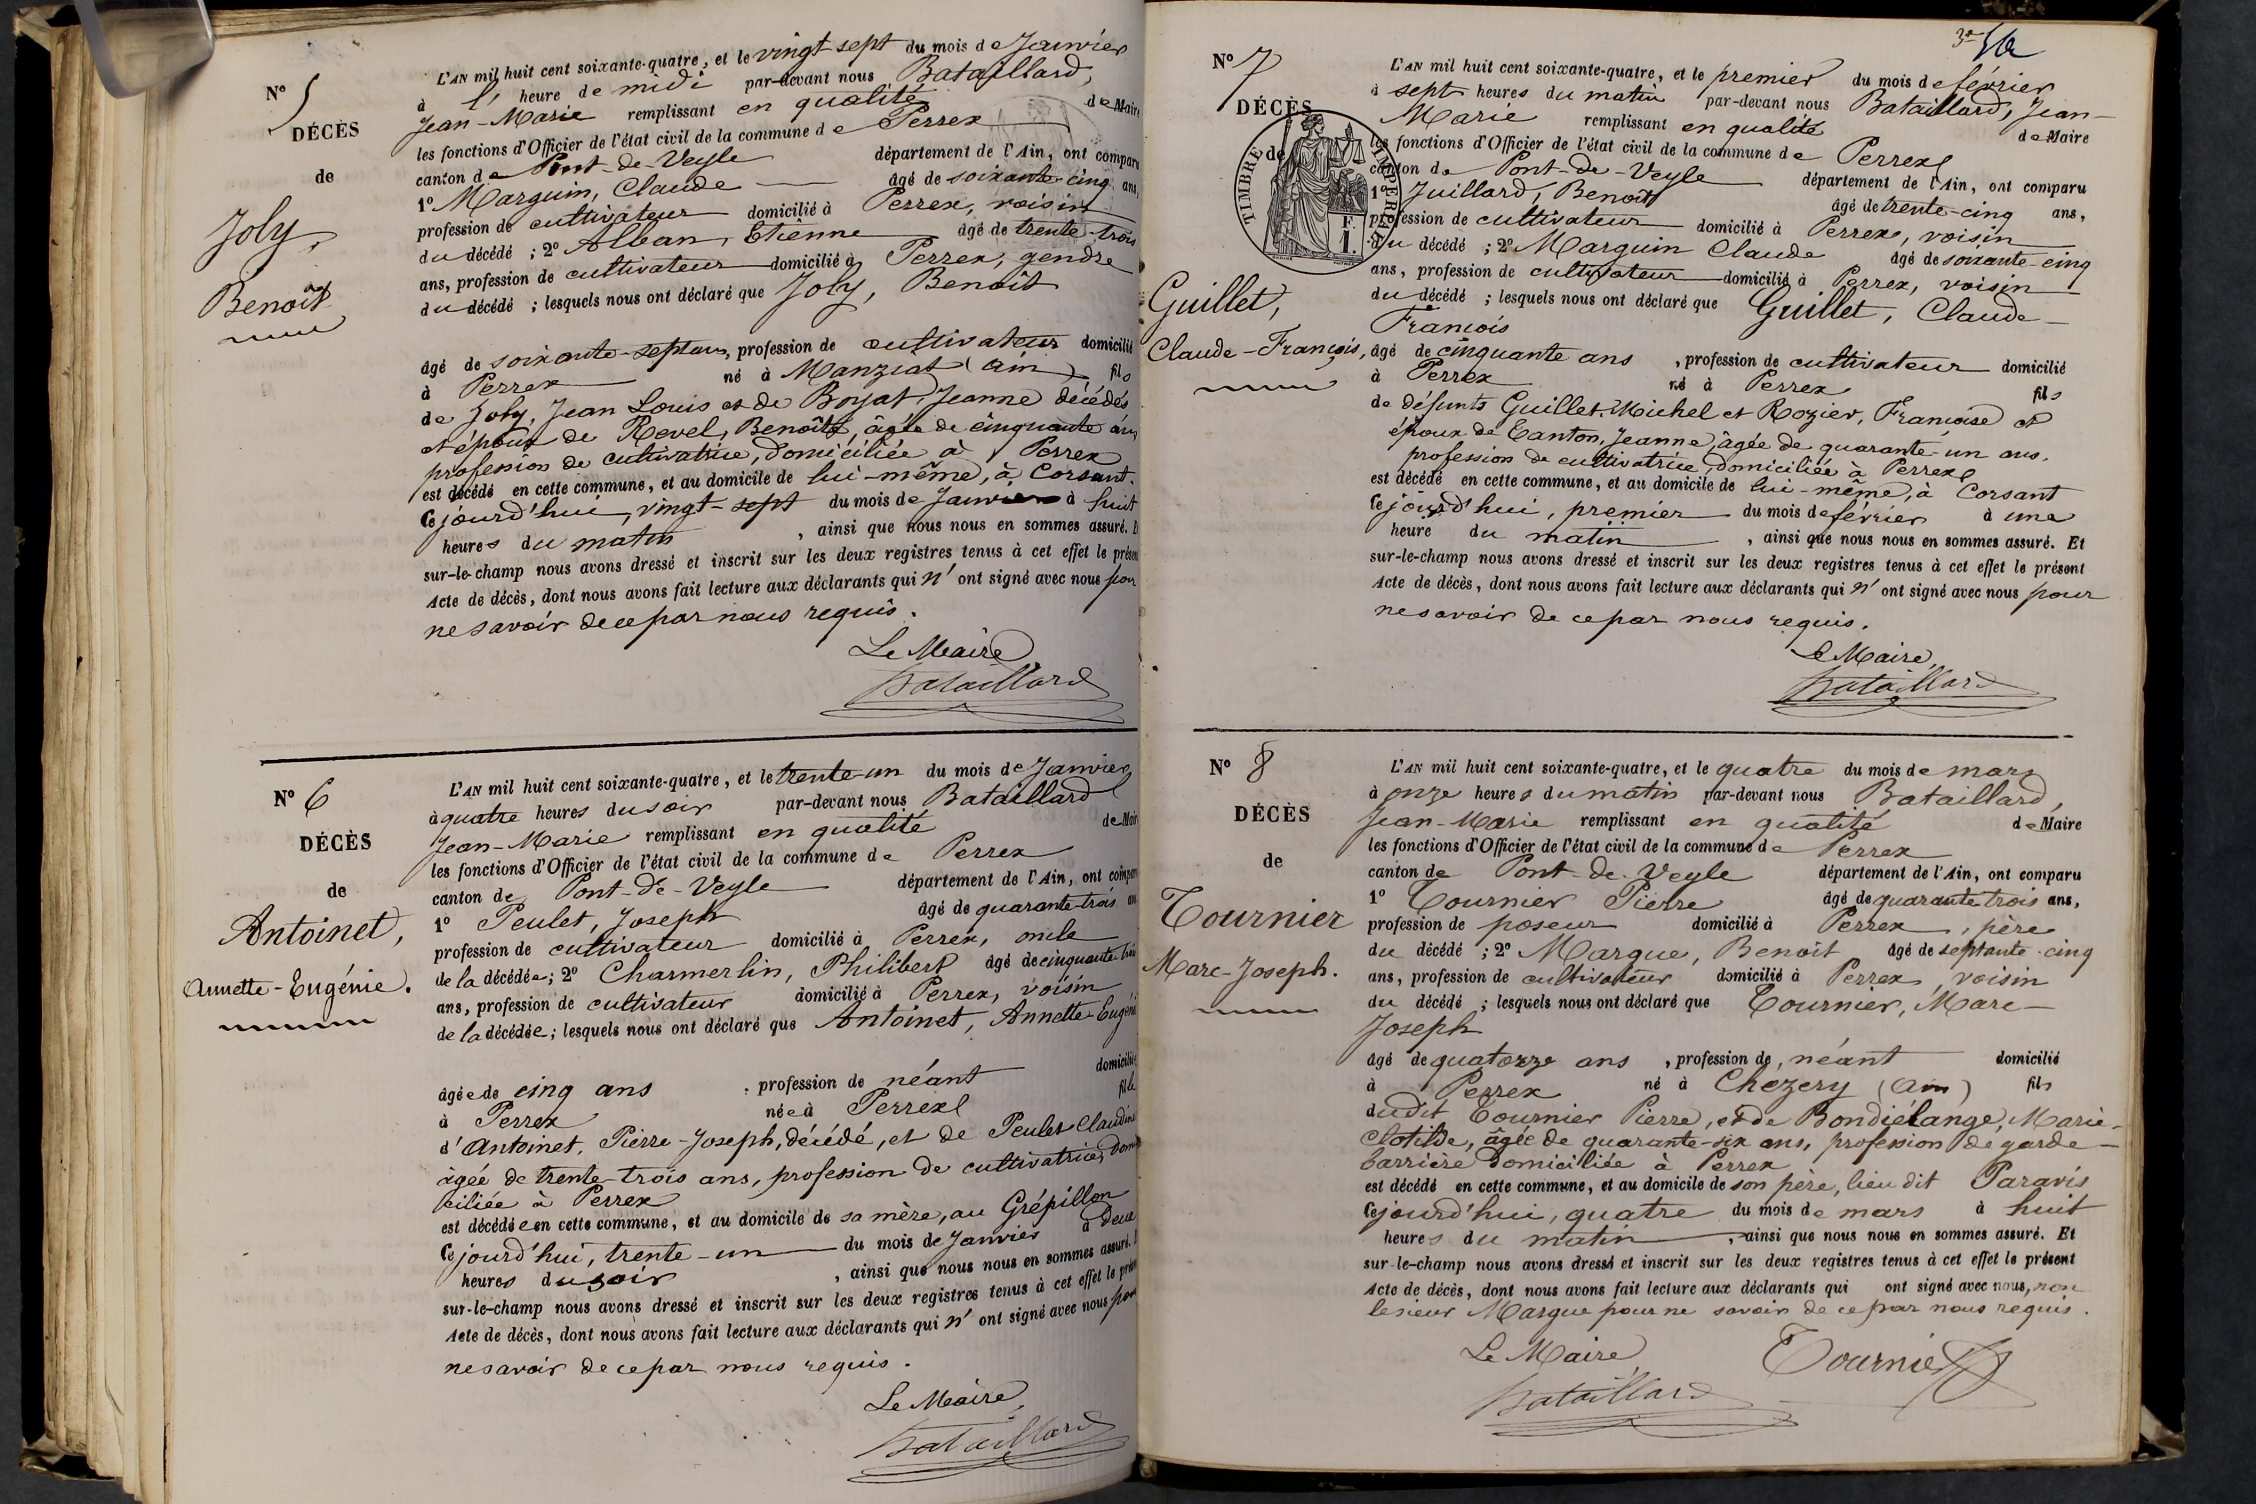 N° 5
DÉCÈS
de
Joly,
Benoît
L'AN mil huit cent soixante-quatre, et le vingt sept du mois de Janvier
à l' heure de midi par-devant nous Bataillard,
Jean-Marie remplissant en qualité de Maire
les fonctions d'Officier de l'état civil de la commune de Perrex
canton de Pont-de-Veyle département de l'Ain, ont comparu
1° Marguin, Claude âgé de soixante-cinq ans,
profession de cultivateur domicilié à Perrex, voisin
du décédé ; 2° Alban, Etienne âgé de trente-trois
ans, profession de cultivateur domicilié à Perrex, gendre
du décédé ; lesquels nous ont déclaré que Joly, Benoît
âgé de soixante-sept ans, profession de cultivateur domicilié
à Perrex né à Manziat (Ain) fils
de Joly, Jean Louis et de Boyat, Jeanne décédés
et époux de Revel, Benoîte, âgée de cinquante ans
profession de cultivatrice, domiciliée à Perrex
est décédé en cette commune, et au domicile de lui-même, à Corsant.
Cejourd'hui, vingt-sept du mois de Janvier à huit
heures du matin , ainsi que nous nous en sommes assuré. E
sur-le-champ nous avons dressé et inscrit sur les deux registres tenus à cet effet le présen
Acte de décès, dont nous avons fait lecture aux déclarants qui n' ont signé avec nous pour
ne savoir de ce par nous requis.
Le Maire
Bataillard
N° 6
DÉCÈS
de
Antoinet,
Annette-Eugénie.
L'AN mil huit cent soixante-quatre, et le trente-un du mois de Janvier
à quatre heures du soir par-devant nous Bataillard
Jean-Marie remplissant en qualité de Mair
les fonctions d'Officier de l'état civil de la commune de Perrex
canton de Pont-de-Veyle département de l'Ain, ont compar
1° Peulet, Joseph âgé de quarante-trois an
profession de cultivateur domicilié à Perrex, oncle
de la décédée ; 2° Charmerlin, Philibert âgé de cinquante-trois
ans, profession de cultivateur domicilié à Perrex, voisin
de la décédée ; lesquels nous ont déclaré que Antoinet, Annette-Eugéni
âgée de cinq ans , profession de néant domicilié
à Perrex née à Perrex fille
d'Antoinet, Pierre-Joseph, décédé, et de Peulet Claudine
âgée de trente-trois ans, profession de cultivatrice, domi
ciliée à Perrex
est décédée en cette commune, et au domicile de sa mère, au Grépillon
Cejourd'hui, trente-un du mois de Janvier à deux
heures du soir , ainsi que nous nous en sommes assuré. E
sur-le-champ nous avons dressé et inscrit sur les deux registres tenus à cet effet le présen
Acte de décès, dont nous avons fait lecture aux déclarants qui n' ont signé avec nous pour
ne savoir de ce par nous requis.
Le Maire,
Bataillard
N° 7
DÉCÈS
de
TIMBRE IMPERIAL
F.
1.
Guillet,
Claude-François,
L'AN mil huit cent soixante-quatre, et le premier du mois de février
à sept heures du matin par-devant nous Bataillard, Jean-
Marie remplissant en qualité de Maire
les fonctions d'Officier de l'état civil de la commune de Perrex
canton de Pont-de-Veyle département de l'Ain, ont comparu
1° Juillard, Benoît âgé de trente-cinq ans,
profession de cultivateur domicilié à Perrex, voisin
du décédé ; 2° Marguin Claude âgé de soixante-cinq
ans, profession de cultivateur domicilié à Perrex, voisin
du décédé ; lesquels nous ont déclaré que Guillet, Claude-
François
âgé de cinquante ans , profession de cultivateur domicilié
à Perrex né à Perrex fils
de défunts Guillet, Michel et Rozier, Françoise et
époux de Canton, Jeanne, âgée de quarante-un ans,
profession de cultivatrice, domiciliée à Perrex
est décédé en cette commune, et au domicile de lui-même, à Corsant
Cejourd'hui, premier du mois de février à une
heure du matin , ainsi que nous nous en sommes assuré. Et
sur-le-champ nous avons dressé et inscrit sur les deux registres tenus à cet effet le présent
Acte de décès, dont nous avons fait lecture aux déclarants qui n' ont signé avec nous pour
ne savoir de ce par nous requis.
Le Maire,
Bataillard
N° 8
DÉCÈS
de
Tournier
Marc-Joseph.
L'AN mil huit cent soixante-quatre, et le quatre du mois de mars
à onze heures du matin par-devant nous Bataillard,
Jean-Marie remplissant en qualité de Maire
les fonctions d'Officier de l'état civil de la commune de Perrex
canton de Pont-de-Veyle département de l'Ain, ont comparu
1° Tournier Pierre âgé de quarante trois ans,
profession de poseur domicilié à Perrex, père
du décédé ; 2° Margue, Benoît âgé de septante-cinq
ans, profession de cultivateur domicilié à Perrex, voisin
du décédé ; lesquels nous ont déclaré que Tournier, Marc-
Joseph
âgé de quatorze ans , profession de, néant domicilié
à Perrex né à Chezery (Ain) fils
dudit Tournier Pierre, et de Bondiélange, Marie-
Clotilde, âgée de quarante-six ans, profession de garde-
barrière domiciliée à Perrex
est décédé en cette commune, et au domicile de son père, lieu dit Paravis
Cejourd'hui, quatre du mois de mars à huit
heures du matin , ainsi que nous nous en sommes assuré. Et
sur-le-champ nous avons dressé et inscrit sur les deux registres tenus à cet effet le présent
Acte de décès, dont nous avons fait lecture aux déclarants qui ont signé avec nous, non
le sieur Margue pour ne savoir de ce par nous requis.
Le Maire,
Tournier
Bataillard